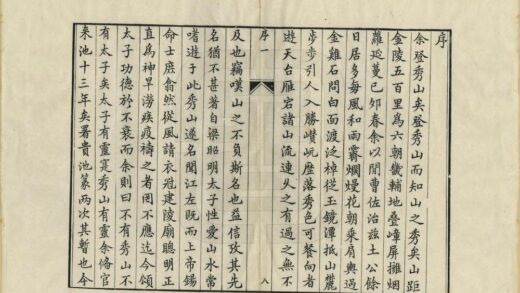 序
余登秀山矣登秀山而知山之秀矣山距
金陵五百里爲六朝畿輔地疊嶂屏攤烟
蘿延蔓己卯春余以閒曹佐治兹土公餘
日居多每風和雨霽爛熳花朝乘肩輿過
金雞石問白面渡泛棹從玉鏡潭抵山麓
步步引人入勝巑岏壁落秀色可餐向者
遊天台雁宕諸山流連久之有過之無不
序一
八
及也竊嘆山之不負斯名也益信攷其先
名猶不甚著自梁昭明太子性愛山水常
嗜遊于此秀山遂名聞江左既而上帝錫
命士庶翕然從風請衣冠建陵廟聰明正
直爲神旱澇疾疫禱之者罔不應迄今頌
太子功德於不衰而余則曰不有秀山不
有太子矣太子有靈秀山有靈余脩官
来池十三年矣署貴池篆兩次其暫也今